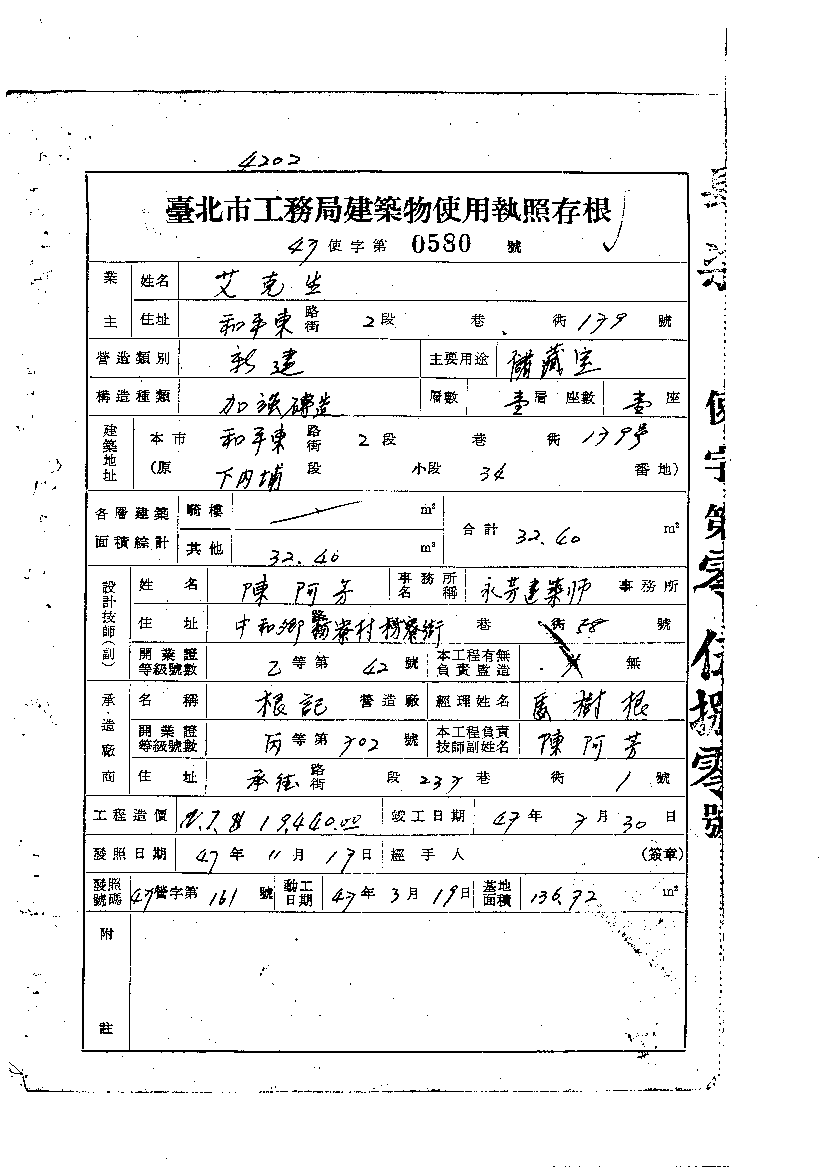 4202
臺北市工務局建築物使用執照存根
47 使字第 0580 號
業主 姓名 艾克生
住址 和平東 路街 2 段 巷 衖 179 號
營造類別 新建 主要用途 儲藏室
構造種類 加強磚造 層數 壹層 座數 壹座
建築地址 本市 和平東 路街 2 段 巷 衖 179號
(原 下內埔 段 小段 34 番地)
各層建築面積綜計 騎樓 m² 合計 32.40 m²
其他 32.40 m²
設計技師(副) 姓名 陳阿芳 事務所名稱 永芳建築師 事務所
住址 中和鄉 路街 巷 衖 58 號
開業證等級號數 乙等第 42 號 本工程有無負責監造 無
承造廠商 名稱 根記 營造廠 經理姓名 馬樹根
開業證等級號數 丙等第 702 號 本工程負責技師副姓名 陳阿芳
住址 承德 路街 段 237 巷 衖 1 號
工程造價 N.T.$ 19,440.00 竣工日期 47年 7月 30日
發照日期 47年 11月 17日 經手人 (簽章)
發照號碼 47營字第 161 號 動工日期 47年 3月 19日 基地面積 136.72 m²
附註
使字第零伍捌零號